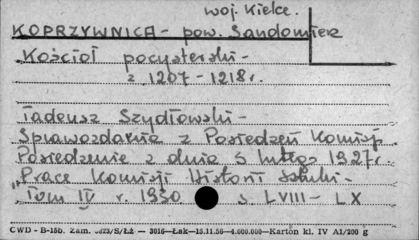 woj. Kielce.
KOPRZYWNICA - pow. Sandomierz
Kościół pocysterski -
z 1207 - 1218 r.
Tadeusz Szydłowski -
Sprawozdania z Posiedzeń Komisji
Posiedzenie z dnia 5 lutego 1927 r.
"Prace Komisji Historii Sztuki -
Tom IV r. 1930 s. LVIII - LX
CWD - B-15b. Zam. 5823/S/ŁŻ — 3016—Łak—15.11.56—4.000.000—Karton kl. IV A1/200 g